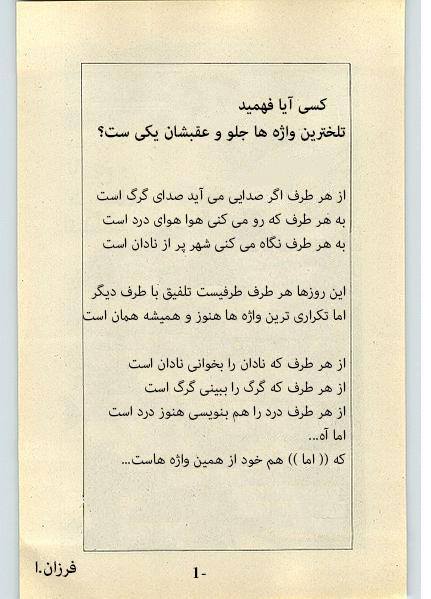 کسی آیا فهمید
تلخترین واژه ها جلو و عقبشان یکی ست؟
از هر طرف اگر صدایی می آید صدای گرگ است
به هر طرف که رو می کنی هوا هوای درد است
به هر طرف نگاه می کنی شهر پر از نادان است
این روزها هر طرف طرفیست تلفیق با طرف دیگر
اما تکراری ترین واژه ها هنوز و همیشه همان است
از هر طرف که نادان را بخوانی نادان است
از هر طرف که گرگ را ببینی گرگ است
از هر طرف درد را هم بنویسی هنوز درد است
اما آه...
که (( اما )) هم خود از همین واژه هاست...
فرزان.ا
1-